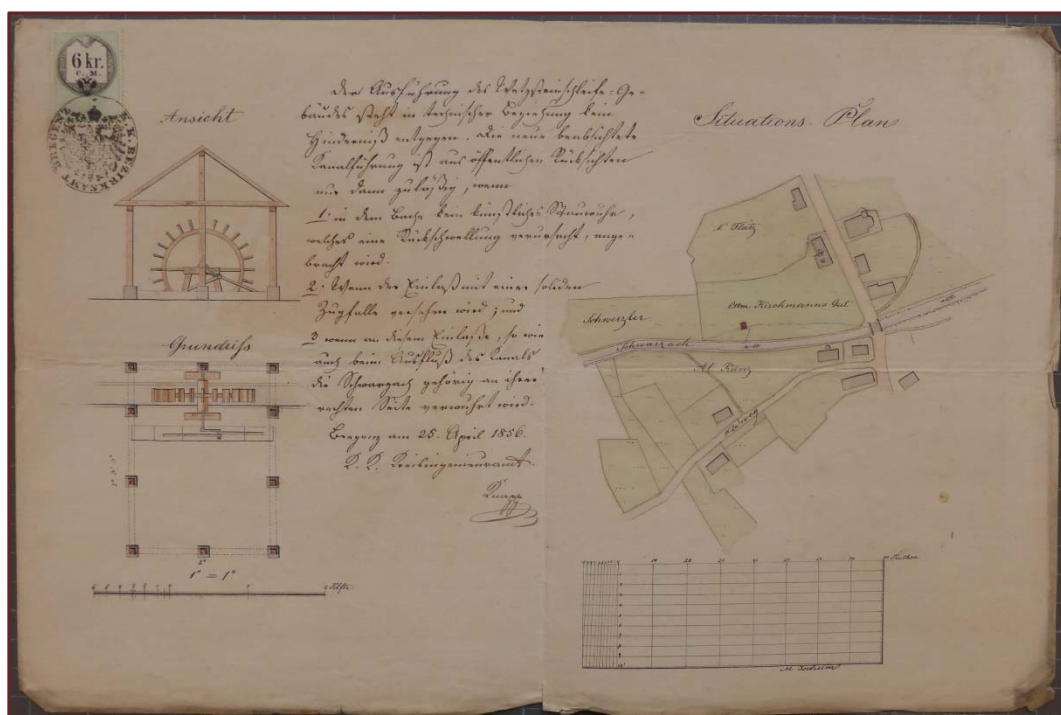 6 kr.
C. M.
K. K. BEZIRKSAMT BREGENZ
Ansicht
Der Ausführung des Wetzsteinschleife-Ge-
bäudes steht in technischer Beziehung kein
Hinderniß entgegen. Die neue beabsichtete
Kanalführung ist aus öffentlichen Rücksichten
nur dann zuläßig, wenn
1. in dem Bache kein künstliches Stauwuhr,
welches eine Rückschwellung verursacht, ange-
bracht wird.
2. Wenn der Einlaß mit einer soliden
Zugfalle versehen wird; und
3 wenn an diesem Einlaße, so wie
auch beim Ausfluß des Kanals
die Schwarzach gehörig an ihrer
rechten Seite verwuhrt wird.
Bregenz am 25. April 1856.
K. K. Kreisingenieuramt.
Knapp
Grundriss
2°
1" = 1°
Klftr
Situations-Plan
Flatz
Kirchmanns Gut
Schwerzler
Schwarzach
Al. Künz
10
20
30
40
50
60
70
80